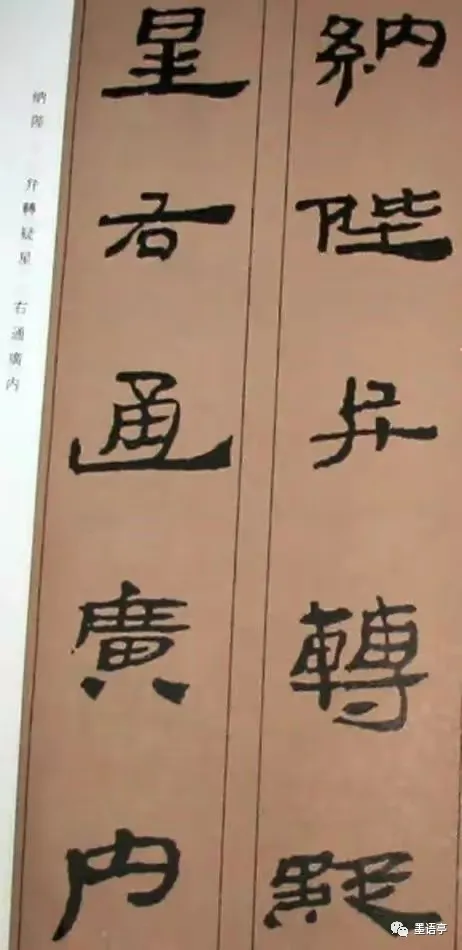 納陛弁轉疑
星右通廣内
納陛 弁轉疑星 右通廣内
墨语亭